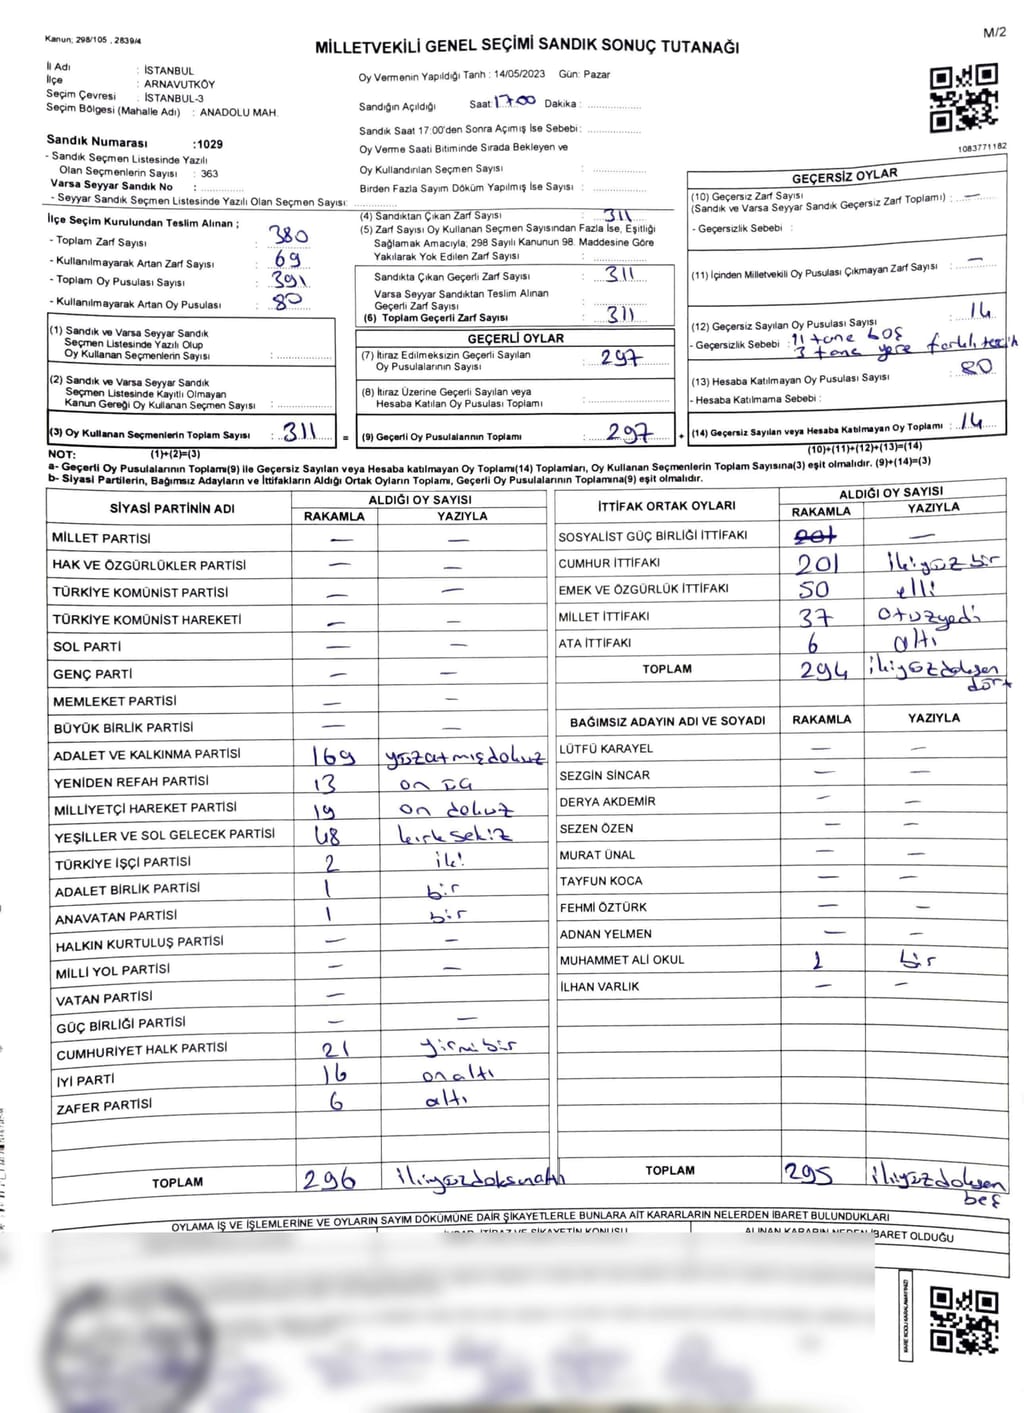 Kanun; 298/105 , 2839/4
M/2
MİLLETVEKİLİ GENEL SEÇİMİ SANDIK SONUÇ TUTANAĞI
İl Adı : İSTANBUL
İlçe : ARNAVUTKÖY
Seçim Çevresi : İSTANBUL-3
Seçim Bölgesi (Mahalle Adı) : ANADOLU MAH.
Sandık Numarası :1029
- Sandık Seçmen Listesinde Yazılı
Olan Seçmenlerin Sayısı : 363
Varsa Seyyar Sandık No :
- Seyyar Sandık Seçmen Listesinde Yazılı Olan Seçmen Sayısı:
Oy Vermenin Yapıldığı Tarih : 14/05/2023 Gün: Pazar
Sandığın Açıldığı Saat: 17:00 Dakika :
Sandık Saat 17:00'den Sonra Açılmış İse Sebebi :
Oy Verme Saati Bitiminde Sırada Bekleyen ve
Oy Kullandırılan Seçmen Sayısı :
Birden Fazla Sayım Döküm Yapılmış İse Sayısı :
1083771182
İlçe Seçim Kurulundan Teslim Alınan ;
- Toplam Zarf Sayısı : 380
- Kullanılmayarak Artan Zarf Sayısı : 69
- Toplam Oy Pusulası Sayısı : 391
- Kullanılmayarak Artan Oy Pusulası : 80
(1) Sandık ve Varsa Seyyar Sandık
Seçmen Listesinde Yazılı Olup
Oy Kullanan Seçmenlerin Sayısı :
(2) Sandık ve Varsa Seyyar Sandık
Seçmen Listesinde Kayıtlı Olmayan
Kanun Gereği Oy Kullanan Seçmen Sayısı :
(3) Oy Kullanan Seçmenlerin Toplam Sayısı : 311 =
(1)+(2)=(3)
(4) Sandıktan Çıkan Zarf Sayısı : 311
(5) Zarf Sayısı Oy Kullanan Seçmen Sayısından Fazla İse, Eşitliği
Sağlamak Amacıyla, 298 Sayılı Kanunun 98. Maddesine Göre
Yakılarak Yok Edilen Zarf Sayısı :
Sandıkta Çıkan Geçerli Zarf Sayısı : 311
Varsa Seyyar Sandıktan Teslim Alınan
Geçerli Zarf Sayısı :
(6) Toplam Geçerli Zarf Sayısı : 311
GEÇERLİ OYLAR
(7) İtiraz Edilmeksizin Geçerli Sayılan
Oy Pusulalarının Sayısı : 297
(8) İtiraz Üzerine Geçerli Sayılan veya
Hesaba Katılan Oy Pusulası Toplamı :
(9) Geçerli Oy Pusulalarının Toplamı : 297 +
GEÇERSİZ OYLAR
(10) Geçersiz Zarf Sayısı
(Sandık ve Varsa Seyyar Sandık Geçersiz Zarf Toplamı) : —
- Geçersizlik Sebebi :
(11) İçinden Milletvekili Oy Pusulası Çıkmayan Zarf Sayısı : —
(12) Geçersiz Sayılan Oy Pusulası Sayısı : 14
- Geçersizlik Sebebi : 11 tane boş
3 tane yere farklı tercih
(13) Hesaba Katılmayan Oy Pusulası Sayısı : 80
- Hesaba Katılmama Sebebi :
(14) Geçersiz Sayılan veya Hesaba Katılmayan Oy Toplamı : 14
(10)+(11)+(12)+(13)=(14)
NOT:
a- Geçerli Oy Pusulalarının Toplamı(9) ile Geçersiz Sayılan veya Hesaba katılmayan Oy Toplamı(14) Toplamları, Oy Kullanan Seçmenlerin Toplam Sayısına(3) eşit olmalıdır. (9)+(14)=(3)
b- Siyasi Partilerin, Bağımsız Adayların ve İttifakların Aldığı Ortak Oyların Toplamı, Geçerli Oy Pusulalarının Toplamına(9) eşit olmalıdır.
SİYASİ PARTİNİN ADI ALDIĞI OY SAYISI
RAKAMLA YAZIYLA
MİLLET PARTİSİ — —
HAK VE ÖZGÜRLÜKLER PARTİSİ — —
TÜRKİYE KOMÜNİST PARTİSİ — —
TÜRKİYE KOMÜNİST HAREKETİ — —
SOL PARTİ — —
GENÇ PARTİ — —
MEMLEKET PARTİSİ — —
BÜYÜK BİRLİK PARTİSİ — —
ADALET VE KALKINMA PARTİSİ 169 yüzatmışdokuz
YENİDEN REFAH PARTİSİ 13 on üç
MİLLİYETÇİ HAREKET PARTİSİ 19 on dokuz
YEŞİLLER VE SOL GELECEK PARTİSİ 48 kırksekiz
TÜRKİYE İŞÇİ PARTİSİ 2 iki
ADALET BİRLİK PARTİSİ 1 bir
ANAVATAN PARTİSİ 1 bir
HALKIN KURTULUŞ PARTİSİ — —
MİLLİ YOL PARTİSİ — —
VATAN PARTİSİ —
GÜÇ BİRLİĞİ PARTİSİ — —
CUMHURİYET HALK PARTİSİ 21 yirmibir
İYİ PARTİ 16 onaltı
ZAFER PARTİSİ 6 altı
TOPLAM 296 ikiyüzdoksanaltı
İTTİFAK ORTAK OYLARI ALDIĞI OY SAYISI
RAKAMLA YAZIYLA
SOSYALİST GÜÇ BİRLİĞİ İTTİFAKI 201 —
CUMHUR İTTİFAKI 201 ikiyüzbir
EMEK VE ÖZGÜRLÜK İTTİFAKI 50 elli
MİLLET İTTİFAKI 37 otuzyedi
ATA İTTİFAKI 6 altı
TOPLAM 294 ikiyüzdoksan
dört
BAĞIMSIZ ADAYIN ADI VE SOYADI RAKAMLA YAZIYLA
LÜTFÜ KARAYEL — —
SEZGİN SİNCAR — —
DERYA AKDEMİR — —
SEZEN ÖZEN — —
MURAT ÜNAL — —
TAYFUN KOCA — —
FEHMİ ÖZTÜRK — —
ADNAN YELMEN — —
MUHAMMET ALİ OKUL 1 bir
İLHAN VARLIK — —
TOPLAM 295 ikiyüzdoksan
beş
OYLAMA İŞ VE İŞLEMLERİNE VE OYLARIN SAYIM DÖKÜMÜNE DAİR ŞİKAYETLERLE BUNLARA AİT KARARLARIN NELERDEN İBARET BULUNDUKLARI
ALINAN KARARIN NEDEN İBARET OLDUĞU
KARE KODU KARALAMAYINIZ!